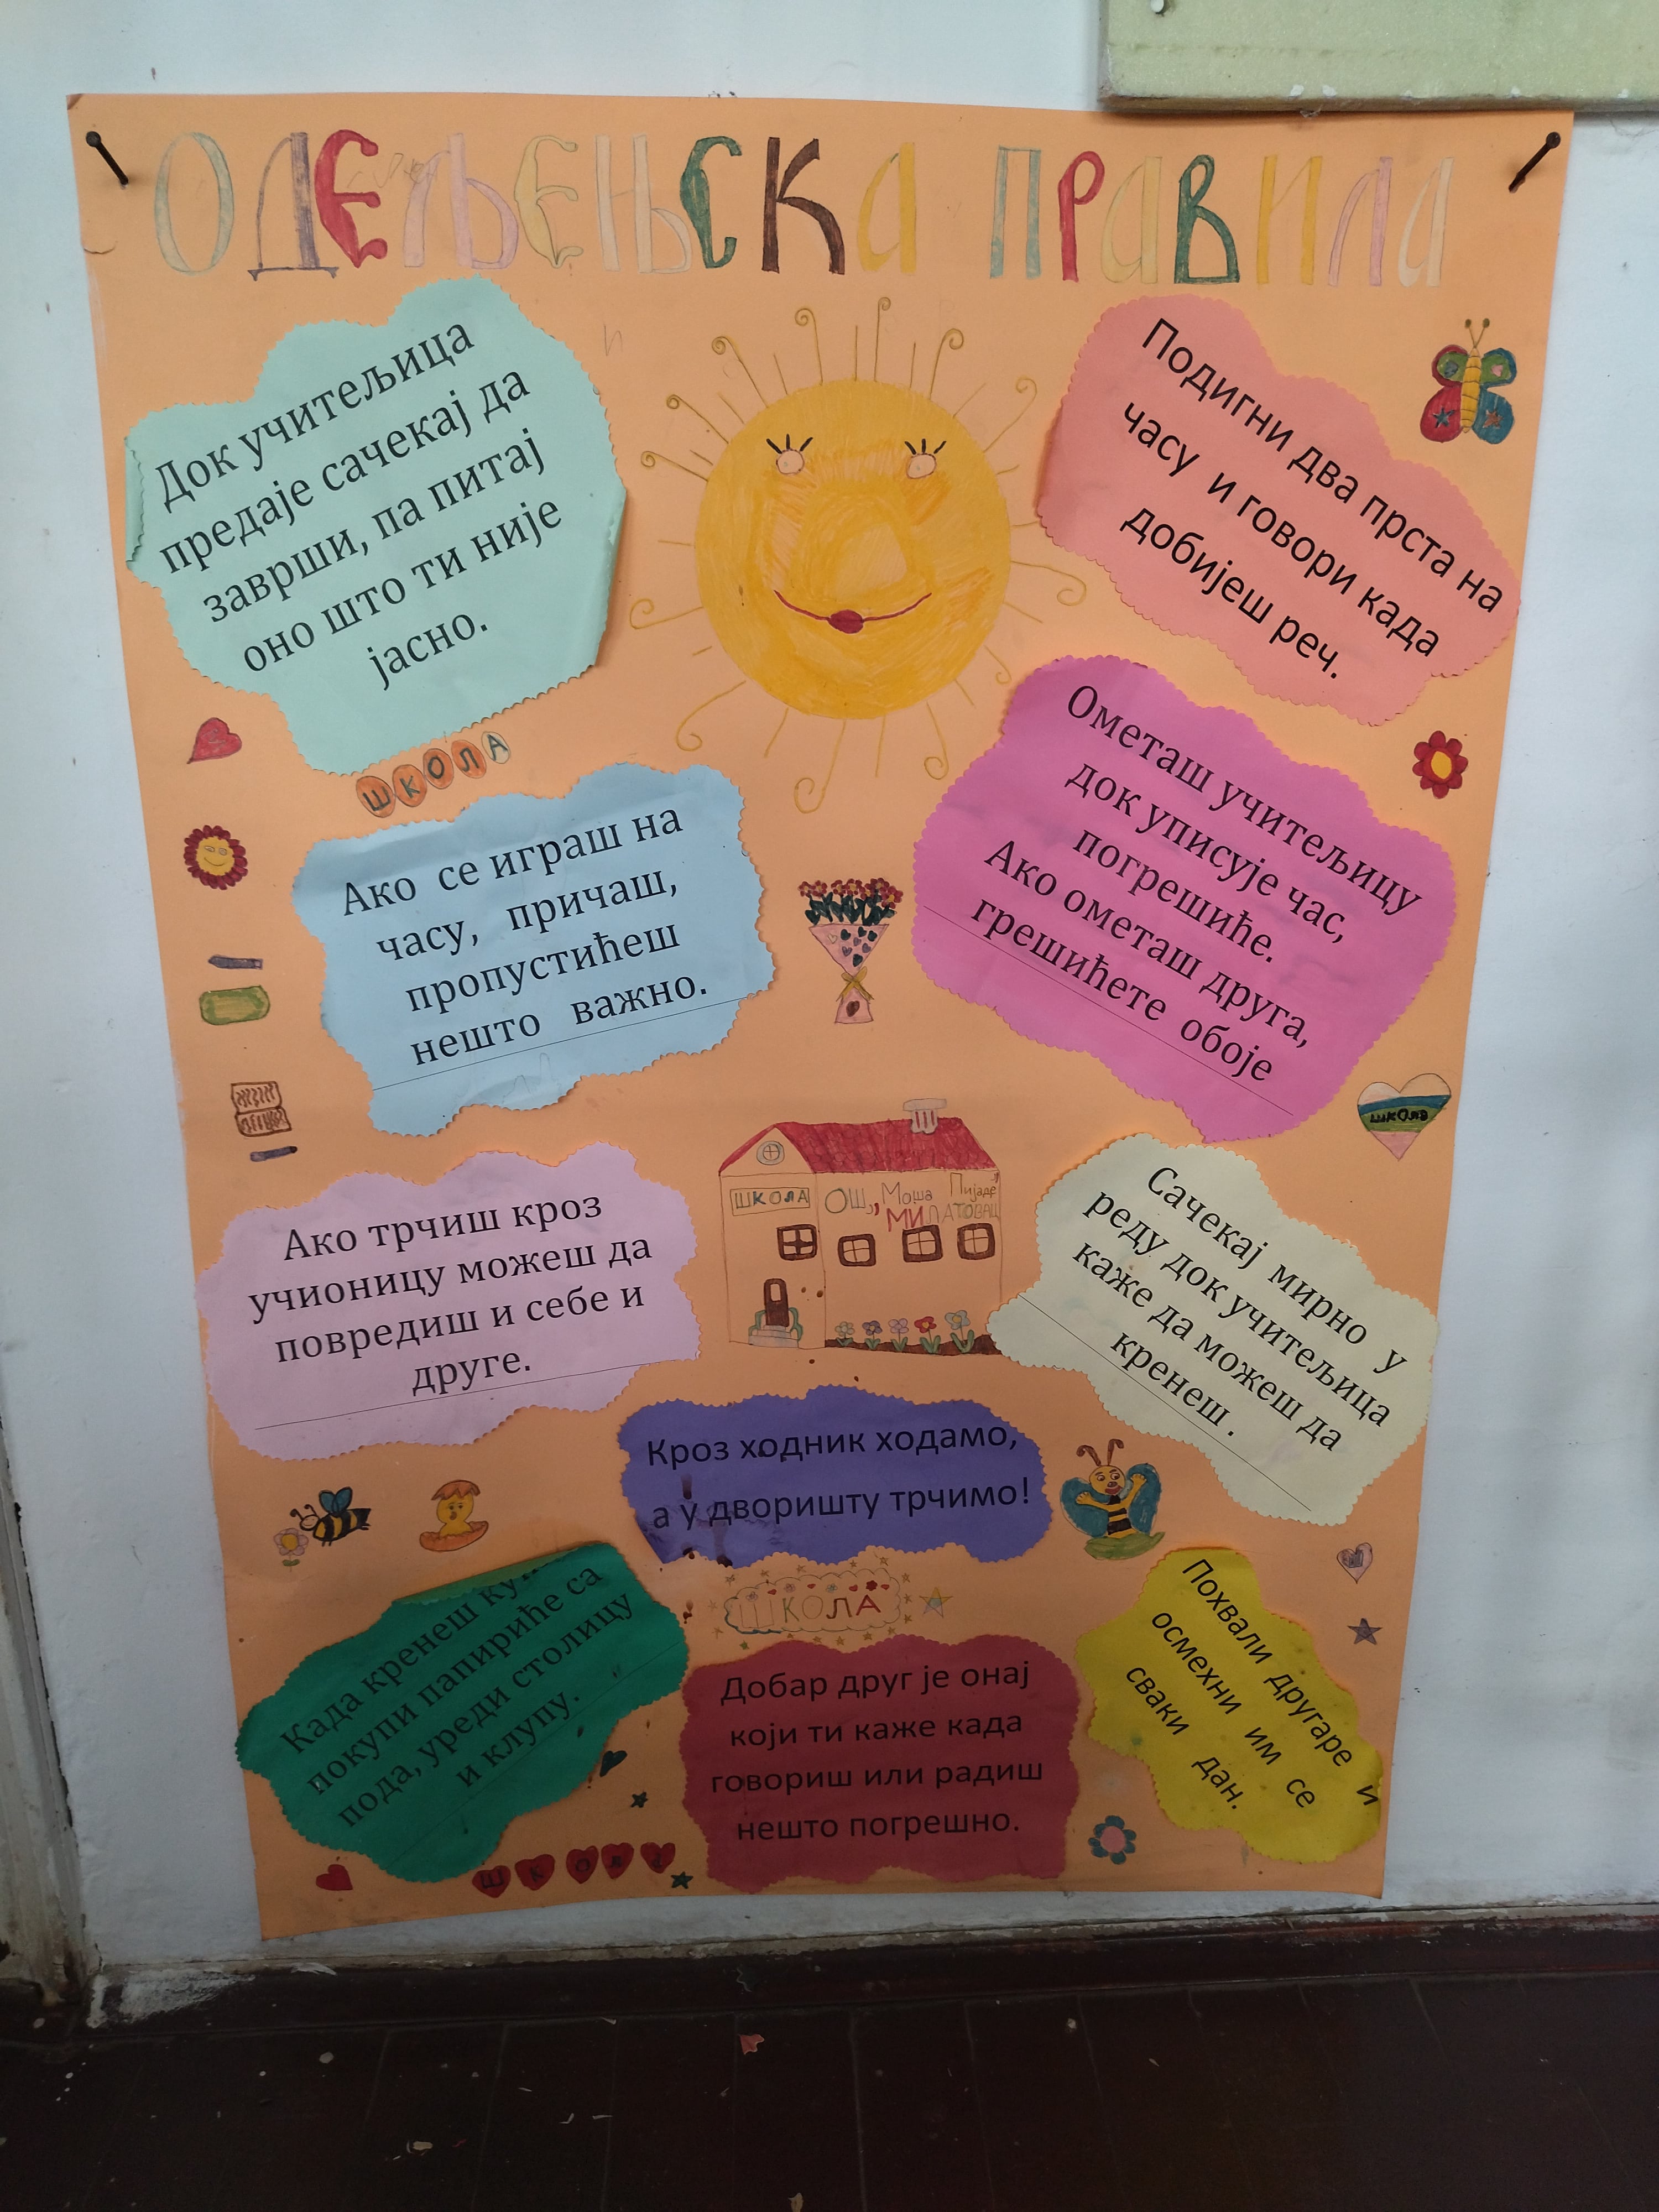 ОДЕЉЕЊСКА ПРАВИЛА
Док учитељица
предаје сачекај да
заврши, па питај
оно што ти није
јасно.
Подигни два прста на
часу и говори када
добијеш реч.
ШКОЛА
Ако се играш на
часу, причаш,
пропустићеш
нешто важно.
Ометаш учитељицу
док уписује час,
погрешиће.
Ако ометаш друга,
грешићете обоје
школа
Ако трчиш кроз
учионицу можеш да
повредиш и себе и
друге.
ШКОЛА
ОШ „Моша Пијаде"
МИЛАТОВАЦ
Сачекај мирно у
реду док учитељица
каже да можеш да
кренеш .
Кроз ходник ходамо,
а у дворишту трчимо!
Када кренеш
покупи папириће са
пода, уреди столицу
и клупу.
ШКОЛА
Добар друг је онај
који ти каже када
говориш или радиш
нешто погрешно.
Похвали другаре и
осмехни им се
сваки дан.
ШКОЛА